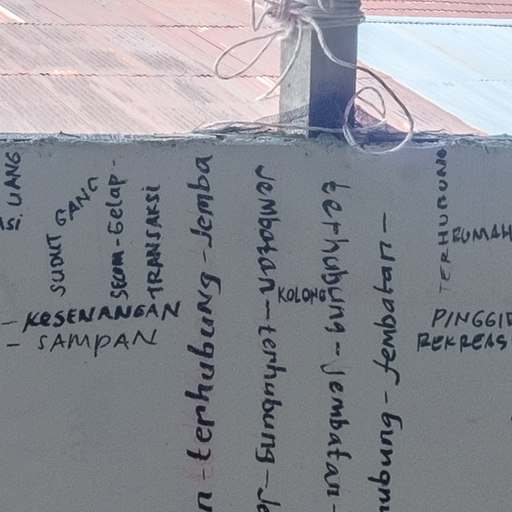 UANG
SUDUT GANG
TRANSAKSI
- KESENANGAN
- SAMPAN
n-terhubung-Jemba
Jembatan-terhubung-Je
KOLONG
terhubung-Jembatan-
hubung-Jembatan-
TERHUBUNG
RUMAH
PINGGIR
REKREAS